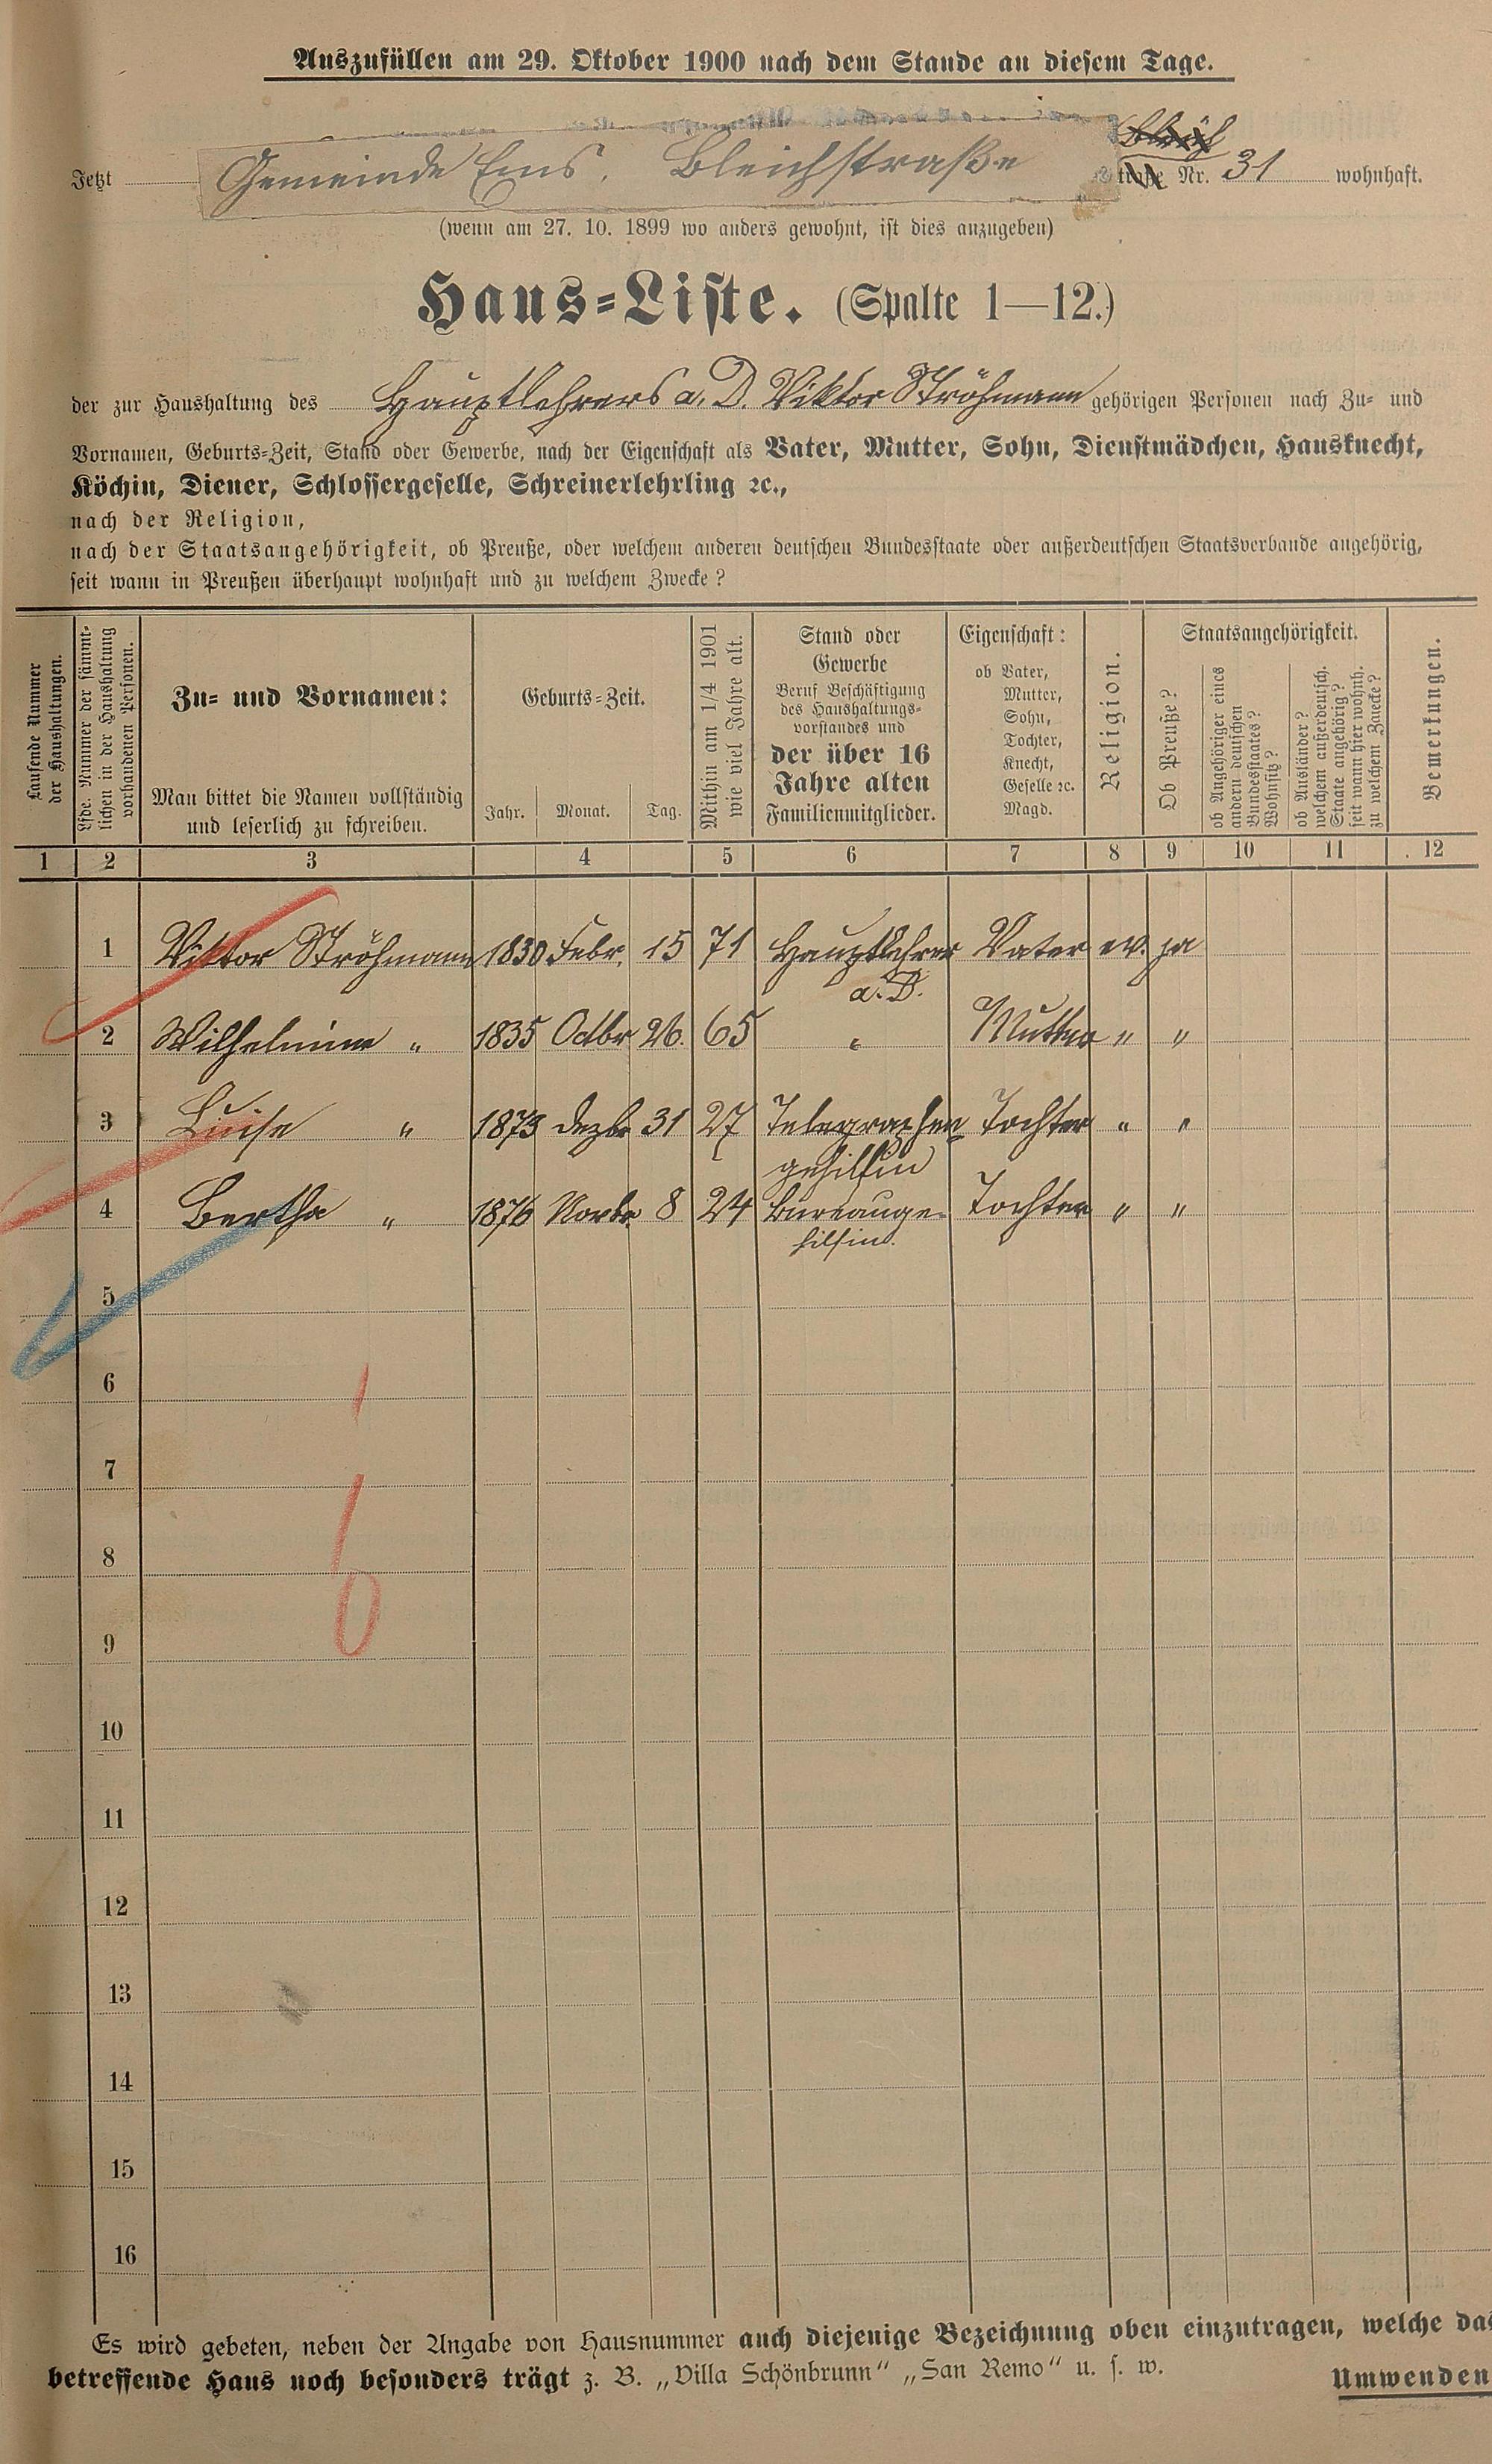 Auszufüllen am 29. Oktober 1900 nach dem Stande an diesem Tage.
Bleich
Jetzt Gemeinde Ems. Bleichstraße Straße Nr. 31 wohnhaft.
(wenn am 27. 10. 1899 wo anders gewohnt, ist dies anzugeben)
Haus-Liste. (Spalte 1—12.)
der zur Haushaltung des Hauptlehrers a. D. Viktor Ströhmann gehörigen Personen nach Zu- und
Vornamen, Geburts-Zeit, Stand oder Gewerbe, nach der Eigenschaft als Vater, Mutter, Sohn, Dienstmädchen, Hausknecht,
Köchin, Diener, Schlossergeselle, Schreinerlehrling ꝛc.,
nach der Religion,
nach der Staatsangehörigkeit, ob Preuße, oder welchem anderen deutschen Bundesstaate oder außerdeutschen Staatsverbande angehörig,
seit wann in Preußen überhaupt wohnhaft und zu welchem Zwecke?
Laufende Nummer
der Haushaltungen.
Lfde. Nummer der sämmt-
lichen in der Haushaltung
vorhandenen Personen.
Zu- und Vornamen:
Man bittet die Namen vollständig
und leserlich zu schreiben.
Geburts-Zeit.
Jahr. Monat. Tag.
Mithin am 1/4 1901
wie viel Jahre alt.
Stand oder
Gewerbe
Beruf Beschäftigung
des Haushaltungs-
vorstandes und
der über 16
Jahre alten
Familienmitglieder.
Eigenschaft:
ob Vater,
Mutter,
Sohn,
Tochter,
Knecht,
Geselle ꝛc.
Magd.
Religion.
Staatsangehörigkeit.
Ob Preuße?
ob Angehöriger eines
andern deutschen
Bundesstaates?
Wohnsitz?
ob Ausländer?
welchem außerdeutsch.
Staate angehörig?
seit wann hier wohnh.
zu welchem Zwecke?
Bemerkungen.
1 2 3 4 5 6 7 8 9 10 11 12
1 Viktor Ströhmann 1830 Febr. 15 71 Hauptlehrer Vater ev. ja
a. D.
2 Wilhelmine " 1835 Octbr 26. 65 " Mutter " "
3 Luise " 1873 Dezbr 31 27 Telegraphen Tochter " "
gehilfin
4 Bertha " 1876 Novbr. 8 24 Bureauge- Tochter " "
hilfin.
5
6
7
8
9
10
11
12
13
14
15
16
Es wird gebeten, neben der Angabe von Hausnummer auch diejenige Bezeichnung oben einzutragen, welche das
betreffende Haus noch besonders trägt z. B. „Villa Schönbrunn" „San Remo" u. s. w.
Umwenden